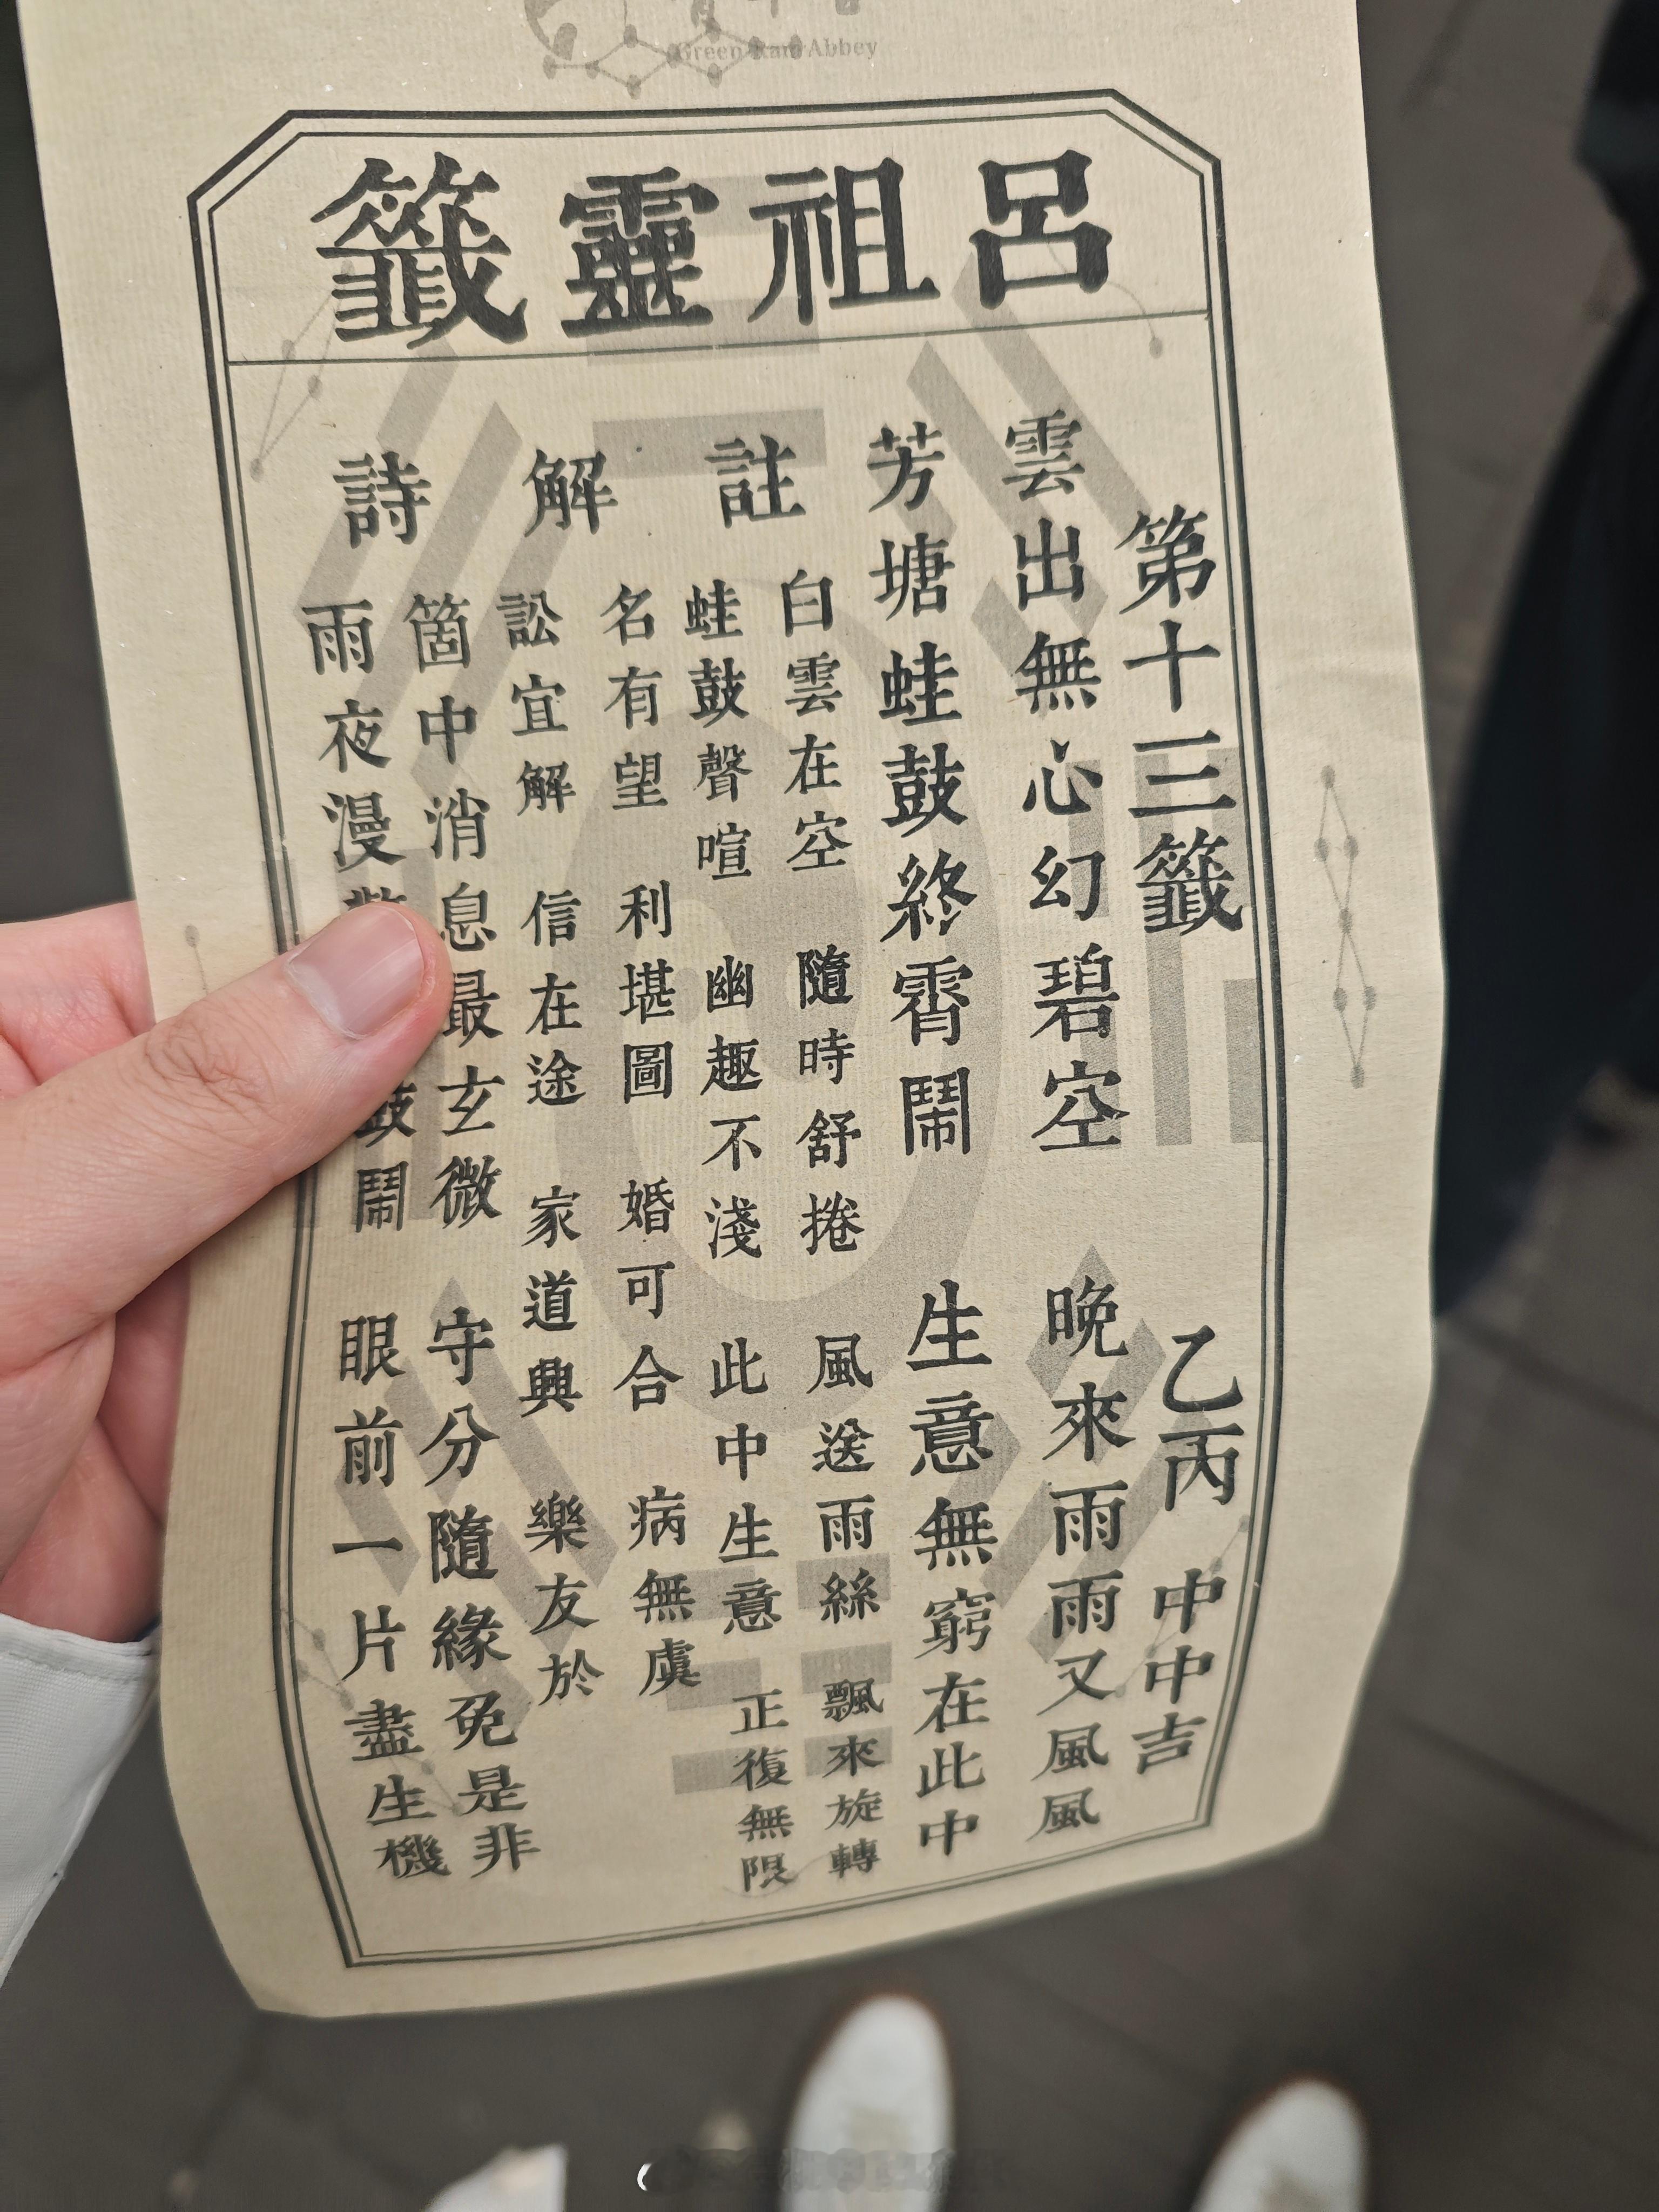 Green Ram Abbey
呂祖靈籤
第十三籤 乙丙 中中吉
雲出無心幻碧空 晚來雨雨又風風
芳塘蛙鼓終霄鬧 生意無窮在此中
註
白雲在空 隨時舒捲 風送雨絲 飄來旋轉
蛙鼓聲喧 幽趣不淺 此中生意 正復無限
解
名有望 利堪圖 婚可合 病無虞
訟宜解 信在途 家道興 樂友於
詩
箇中消息最玄微 守分隨緣免是非
雨夜漫 鼓鬧 眼前一片盡生機